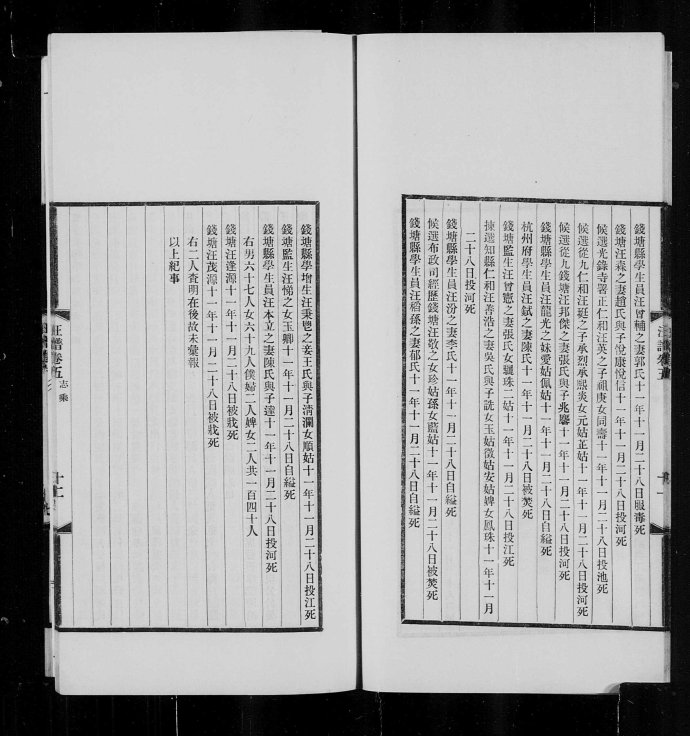 錢塘縣學生員汪曾輔之妻郭氏十一年十一月二十八日服毒死
錢塘汪森之妻趙氏與子悅康悅信十一年十一月二十八日投河死
候選光祿寺署正仁和汪英之子祖庚女同壽十一年十一月二十八日投池死
候選從九仁和汪珽之子承烈承熙炎女元姑芷姑十一年十一月二十八日投河死
候選從九錢塘汪邦傑之妻張氏與子兆馨十一年十一月二十八日投河死
錢塘縣學生員汪龍光之妹愛姑佩姑十一年十一月二十八日自縊死
杭州府學生員汪鉽之妻陳氏十一年十一月二十八日被焚死
錢塘監生汪曾憲之妻張氏女驪珠二姑十一年十一月二十八日投江死
揀選知縣仁和汪善浩之妻吳氏與子詵女玉姑徵姑安姑婢女鳳珠十一年十一月
二十八日投河死
錢塘縣學生員汪汾之妻李氏十一年十一月二十八日自縊死
候選布政司經歷錢塘汪敬之女珍姑孫女藍姑十一年十一月二十八日被焚死
錢塘縣學生員汪稻孫之妻郁氏十一年十一月二十八日自縊死
汪譜卷五
十一
錢塘縣學增生汪秉鬯之妾王氏與子清瀾女順姑十一年十一月二十八日投江死
錢塘監生汪悌之女玉卿十一年十一月二十八日自縊死
錢塘縣學生員汪本立之妻陳氏與子達十一年十一月二十八日投河死
右男六十七人女六十九人僕婦二人婢女二人共一百四十人
錢塘汪逢源十一年十一月二十八日被戕死
錢塘汪茂源十一年十一月二十八日被戕死
右二人查明在後故未彙報
以上紀事
汪譜卷五
志乘
十二